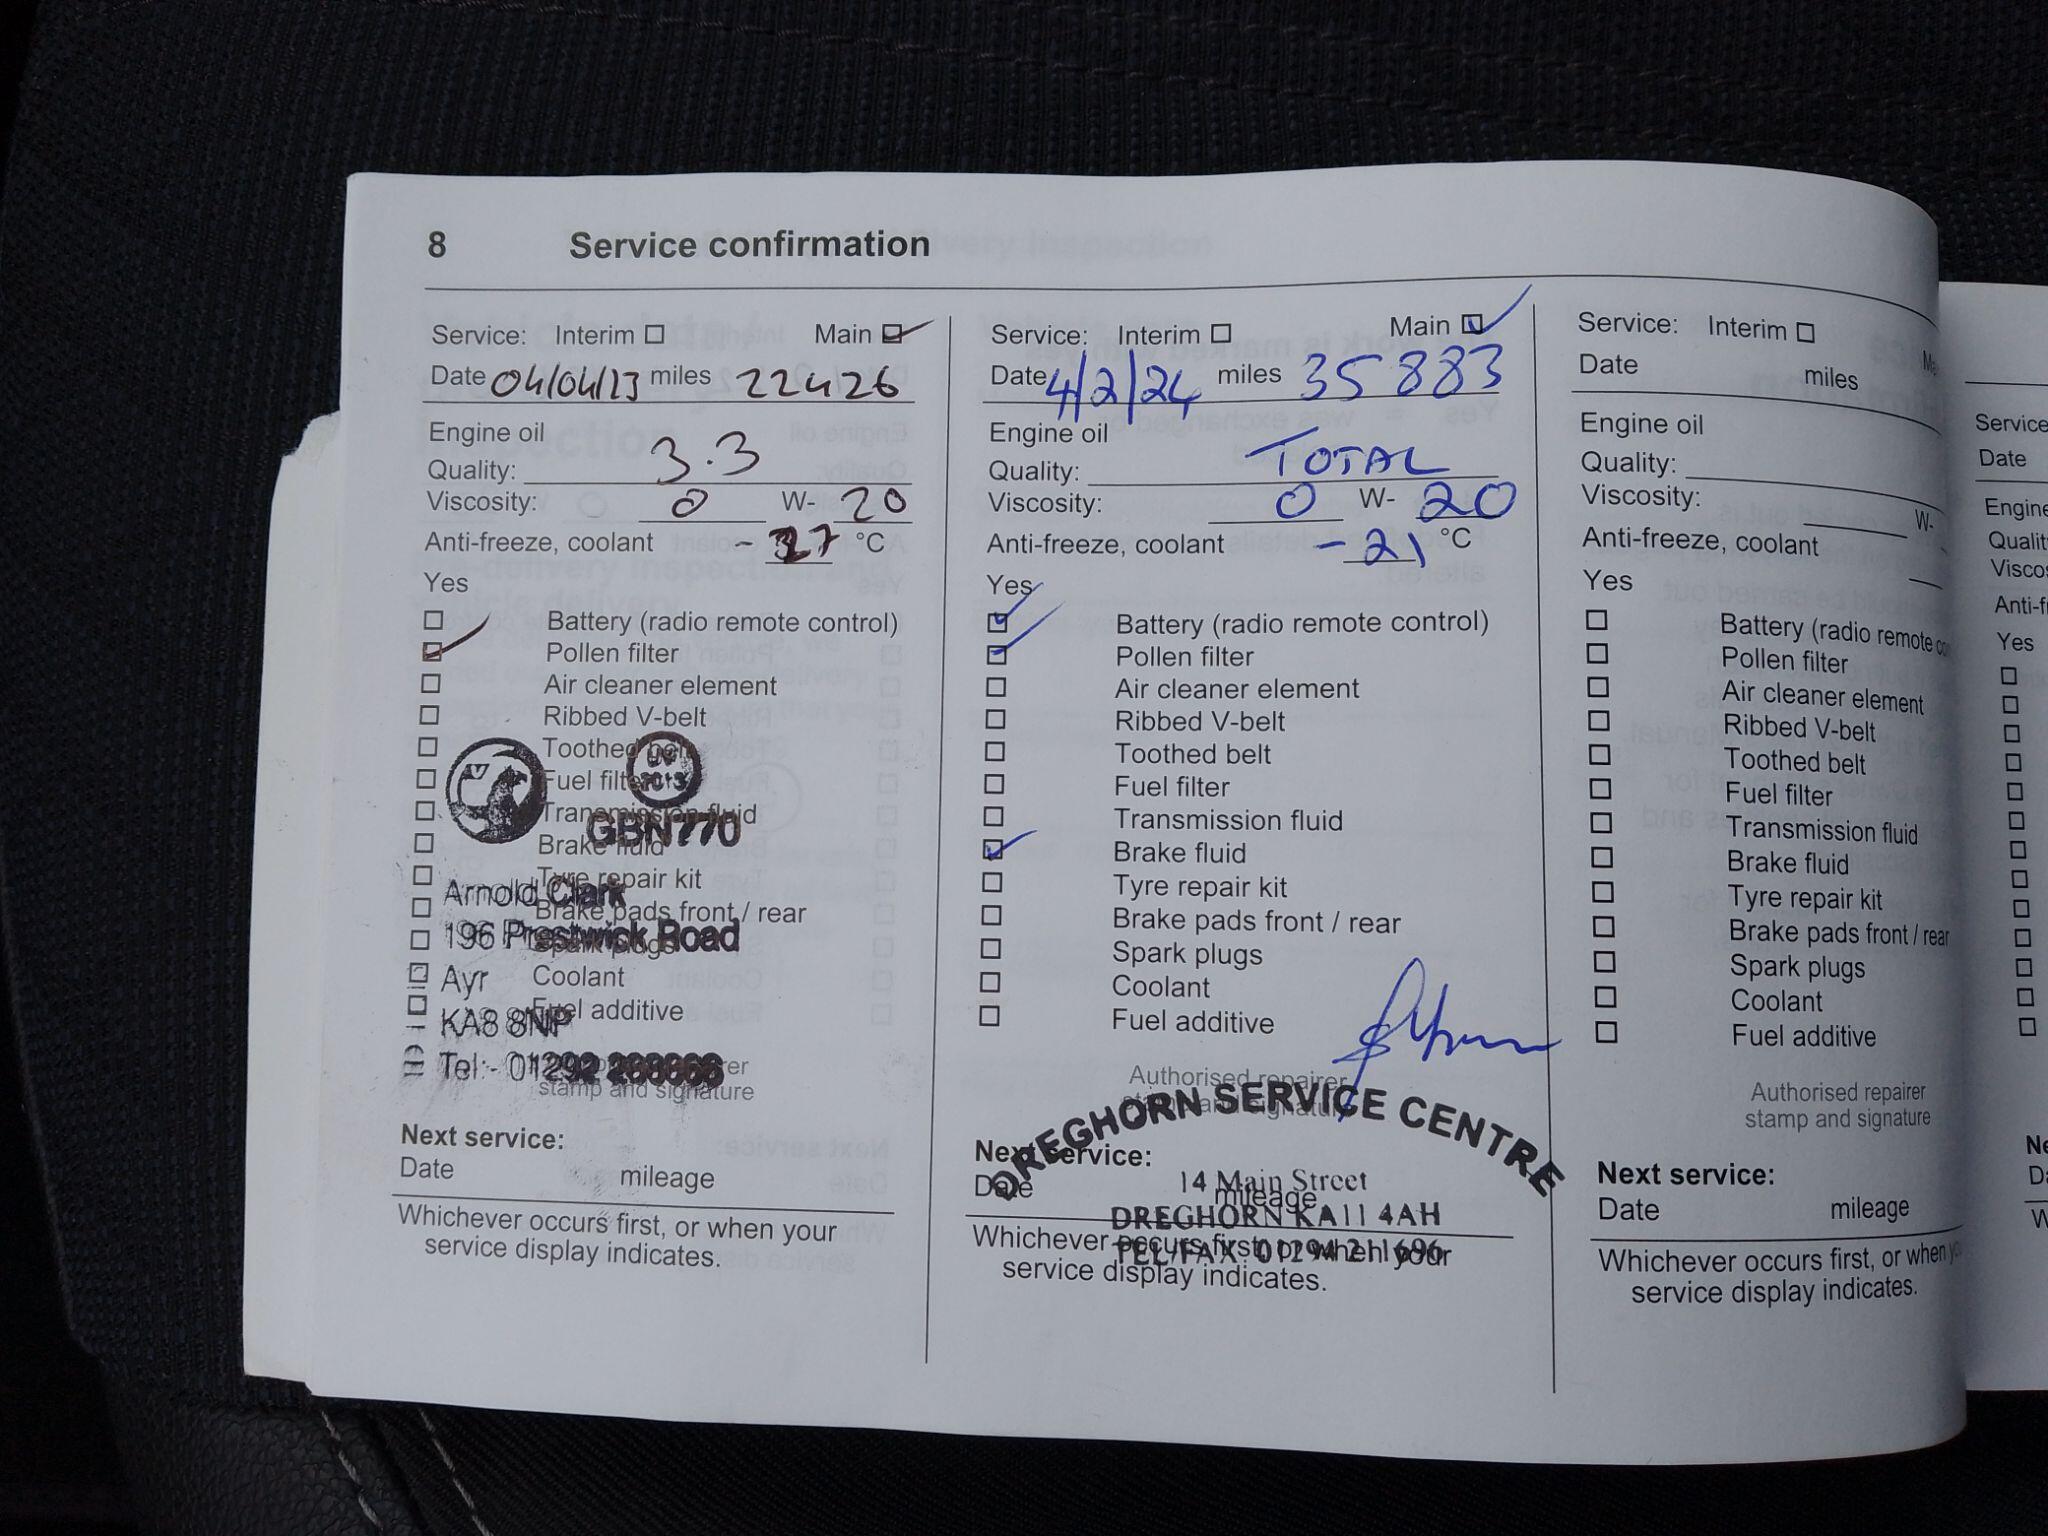 8 Service confirmation
Service: Interim Main
Date 04/04/23 miles 22426
Engine oil
Quality: 3.3
Viscosity: 0 W- 20
Anti-freeze, coolant -37 °C
Yes
Battery (radio remote control)
Pollen filter
Air cleaner element
Ribbed V-belt
Toothed belt
Fuel filter
Transmission fluid
GBN770
Brake fluid
Tyre repair kit
Arnold Clark
Brake pads front / rear
196 Prestwick Road
Spark plugs
Ayr Coolant
Fuel additive
KA8 8NP
Tel:- 01292
stamp and signature
Next service:
Date mileage
Whichever occurs first, or when your
service display indicates.
Service: Interim Main
Date 4/2/24 miles 35883
Engine oil
Quality: TOTAL
Viscosity: 0 W- 20
Anti-freeze, coolant -21 °C
Yes
Battery (radio remote control)
Pollen filter
Air cleaner element
Ribbed V-belt
Toothed belt
Fuel filter
Transmission fluid
Brake fluid
Tyre repair kit
Brake pads front / rear
Spark plugs
Coolant
Fuel additive
Authorised repairer
stamp and signature
DREGHORN SERVICE CENTRE
Next service:
14 Main Street
Date mileage
DREGHORN KA11 4AH
Whichever occurs first, or when your
TEL/FAX 01294 211696
service display indicates.
Service: Interim
Date miles
Engine oil
Quality:
Viscosity: W-
Anti-freeze, coolant
Yes
Battery (radio remote
Pollen filter
Air cleaner element
Ribbed V-belt
Toothed belt
Fuel filter
Transmission fluid
Brake fluid
Tyre repair kit
Brake pads front / rear
Spark plugs
Coolant
Fuel additive
Authorised repairer
stamp and signature
Next service:
Date mileage
Whichever occurs first, or when
service display indicates.
Service
Date
Engine
Yes